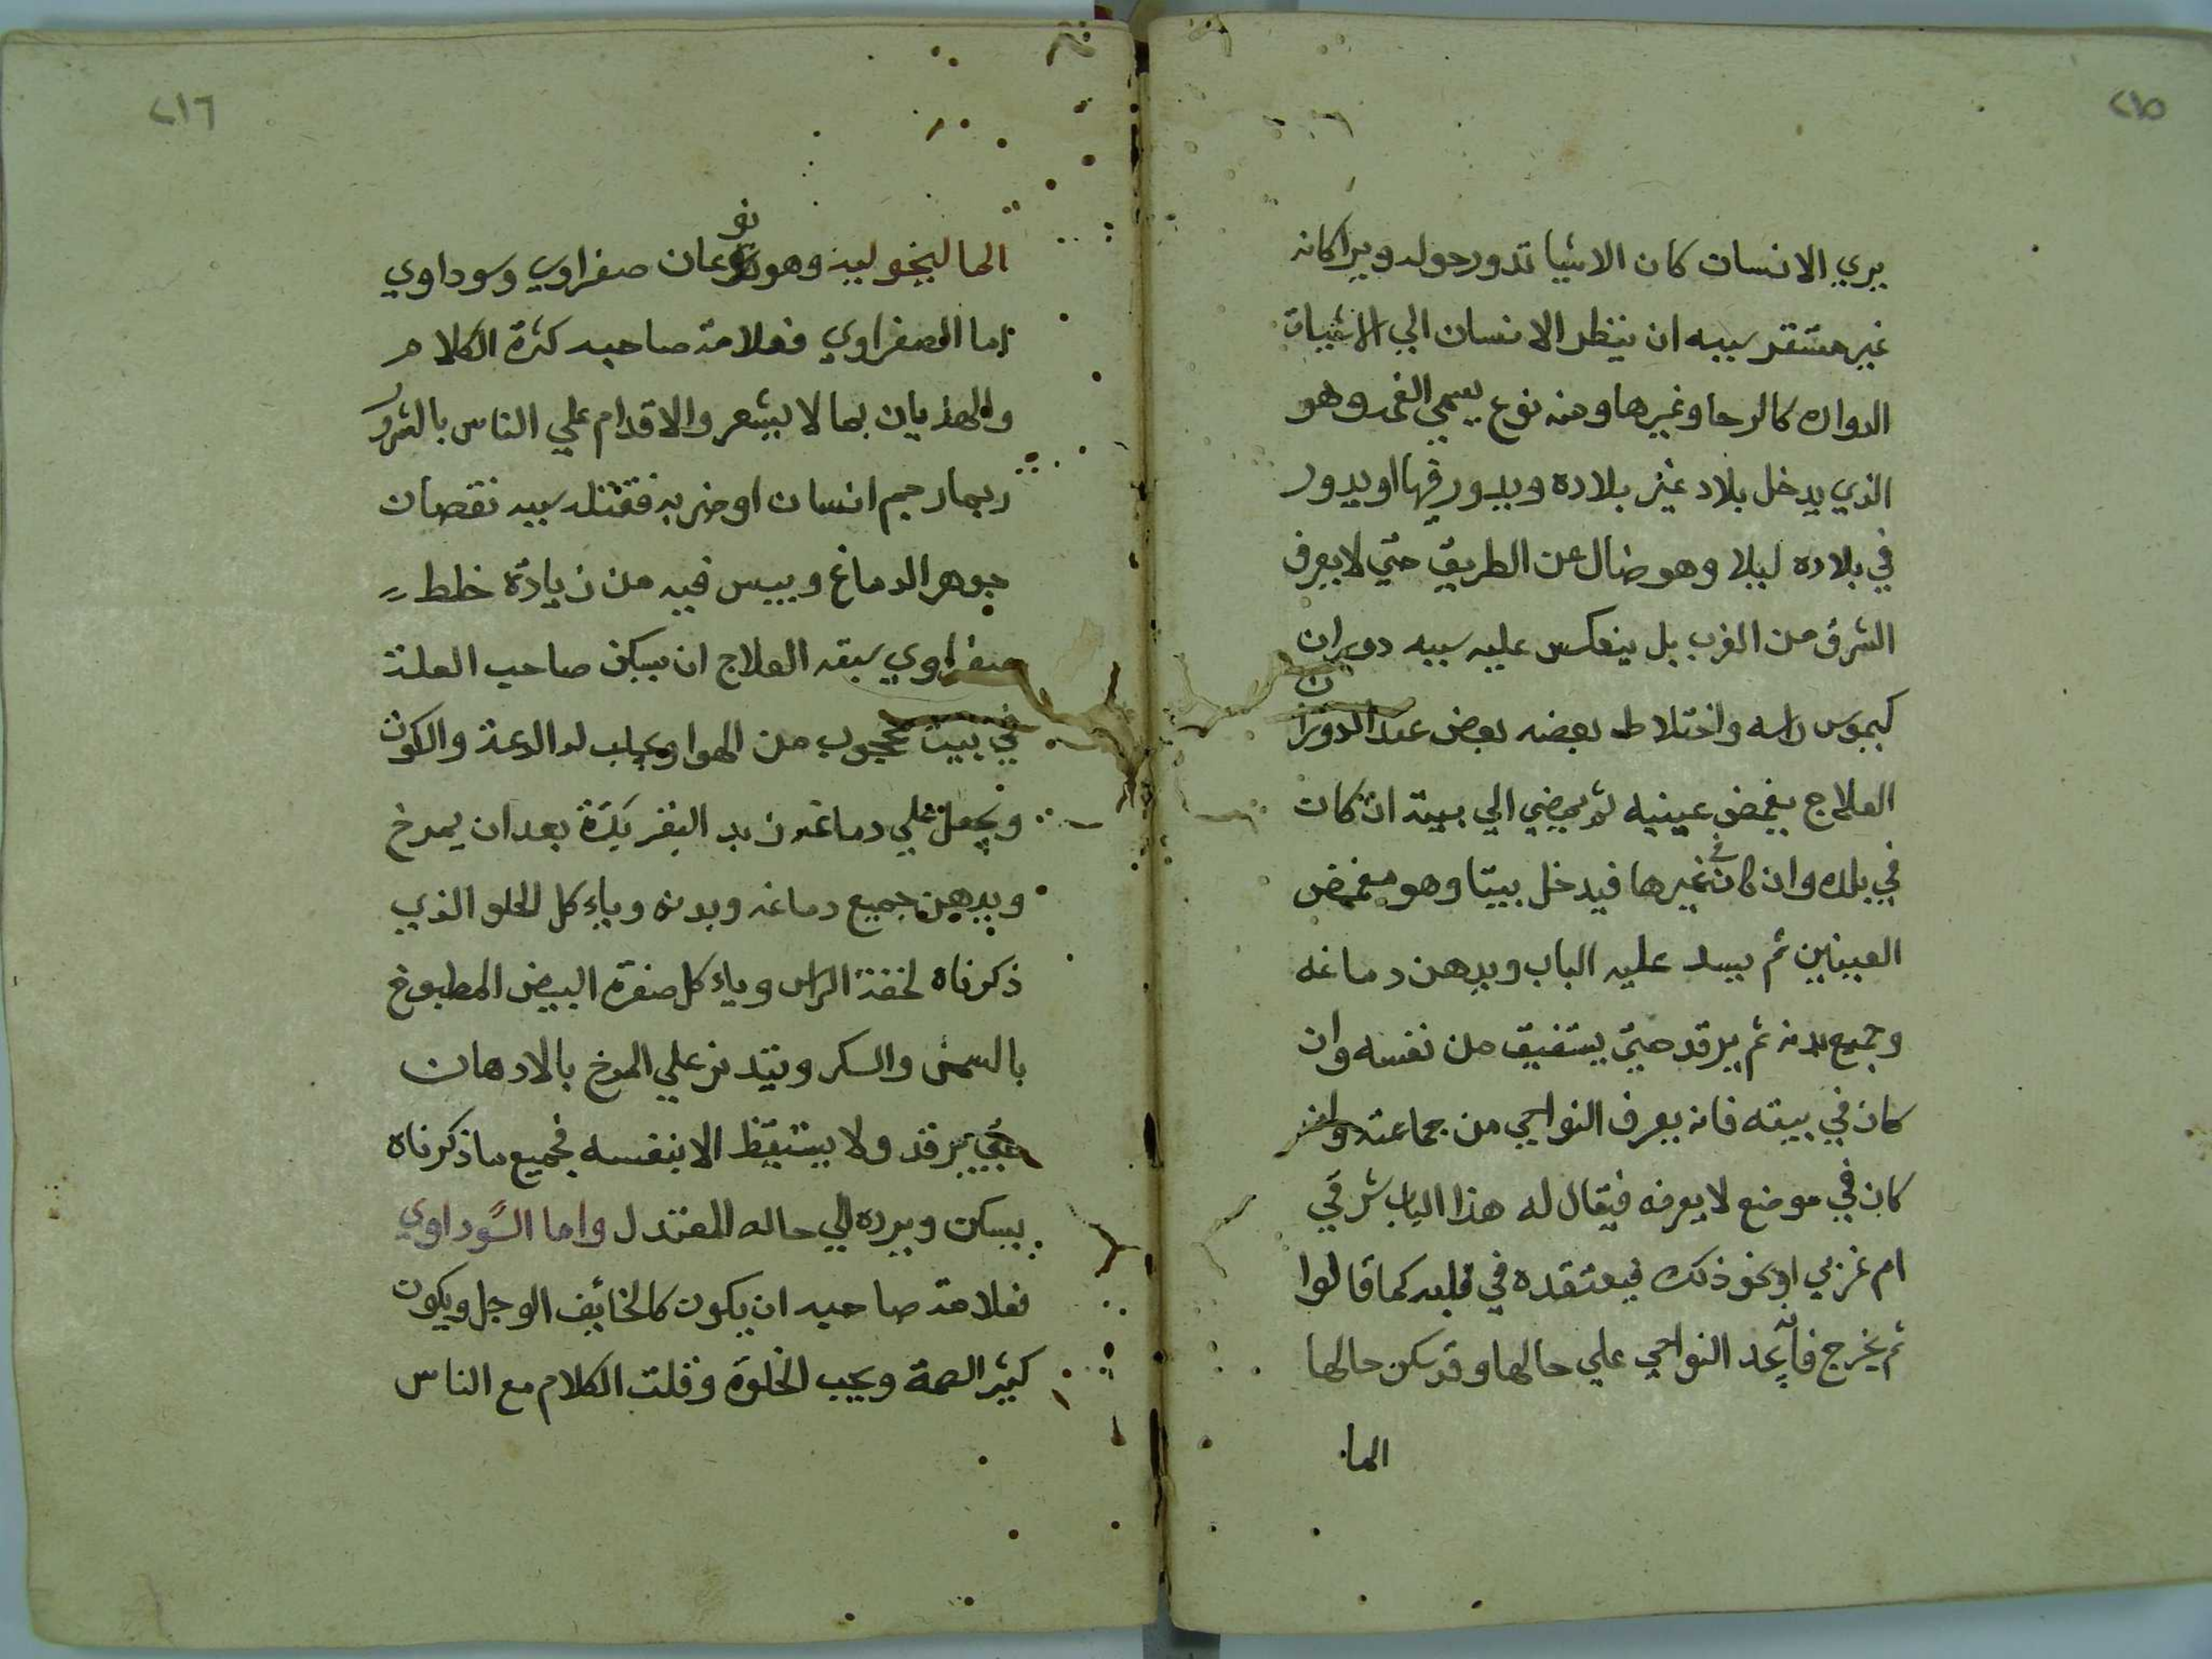 ٢١٥
يري الانسان كان الاشيا تدور حوله ويرا كانه
غير مستقر سببه ان ينظر الانسان الي الاشيات
الدواره كالرحا وغيرها ومنه نوع يسمي الغمه وهو
الذي يدخل بلاد غير بلاده ويدور فيها او يدور
في بلاده ليلا وهو ضال عن الطريق حتي لا يعرف
الشرق من الغرب بل ينعكس عليه سببه دوران
كيموس راسه واختلاط بعضه بعض عند الدوران
العلاج يغمض عينيه ثم يمضي الي بيته ان كان
في بلده وان كان في غيرها فيدخل بيتا وهو مغمض
العينين ثم يسد عليه الباب ويدهن دماغه
وجميع بدنه ثم يرقد حتي يستفيق من نفسه وان
كان في بيته فانه يعرف النواحي من جماعته وان
كان في موضع لا يعرفه فيقال له هذا الباب شرقي
ام غربي او نحو ذلك فيعتقده في قلبه كما قالوا
ثم يخرج فانه يجد النواحي علي حالها وقد سكن حالها
الما
٢١٦
الماليخوليه وهو نوعان صفراوي وسوداوي
اما الصفراوي فعلامة صاحبه كثرة الكلام
والهذيان بما لا يشعر والاقدام علي الناس بالشرور
ربما رجم انسان او ضربه فقتله سببه نقصان
جوهر الدماغ ويبس فيه من زيادة خلط
صفراوي سبقه العلاج ان يسكن صاحب العلة
في بيت محجوب من الهوا ويجلب له الدعة والكون
ويجعل علي دماغه زبد البقر بكرة بعد ان يمرخ
ويدهن جميع دماغه وبدنه وياءكل الحلو الذي
ذكرناه لخفة الراس وياءكل صفرة البيض المطبوخ
بالسمن والسكر ويتدنر علي المرخ بالادهان
حتي يرقد ولا يستيقظ الا بنفسه فجميع ما ذكرناه
يسكن ويرده الي حاله المعتدل واما السوداوي
فعلامة صاحبه ان يكون كالخايف الوجل ويكون
كثير الصمة ويحب الخلوة وقلت الكلام مع الناس